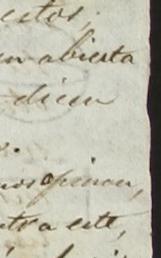 estos,
en abierta
dicen
nos opinan,
ntra este,